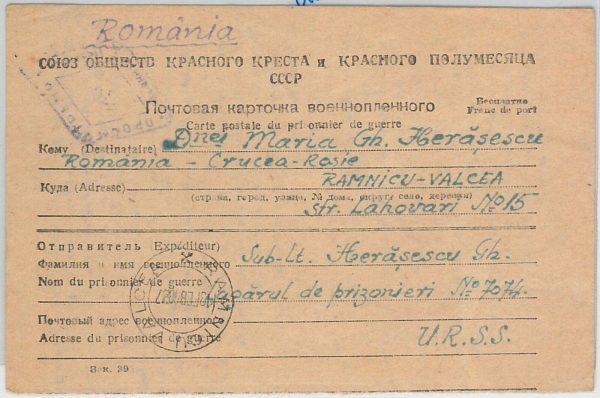 România
СОЮЗ ОБЩЕСТВ КРАСНОГО КРЕСТА и КРАСНОГО ПОЛУМЕСЯЦА
СССР
Почтовая карточка военнопленного
Бесплатно
Carte postale du prisonnier de guerre
Franc de port
Кому (Destinataire) Dnei Maria Gh. Herăşescu
România - Crucea-Rosie
Куда (Adresse) RAMNICU-VALCEA
(страна, город, улица, № дома, округ, село, деревня)
Str. Lahovari No 15
Отправитель (Expéditeur)
Фамилия и имя военнопленного Sub-Lt. Herăşescu Gh.
Nom du prisonnier de guerre Lagărul de prizonieri No 7074.
Почтовый адрес военнопленного
Adresse du prisonnier de guerre U.R.S.S.
Зак. 39